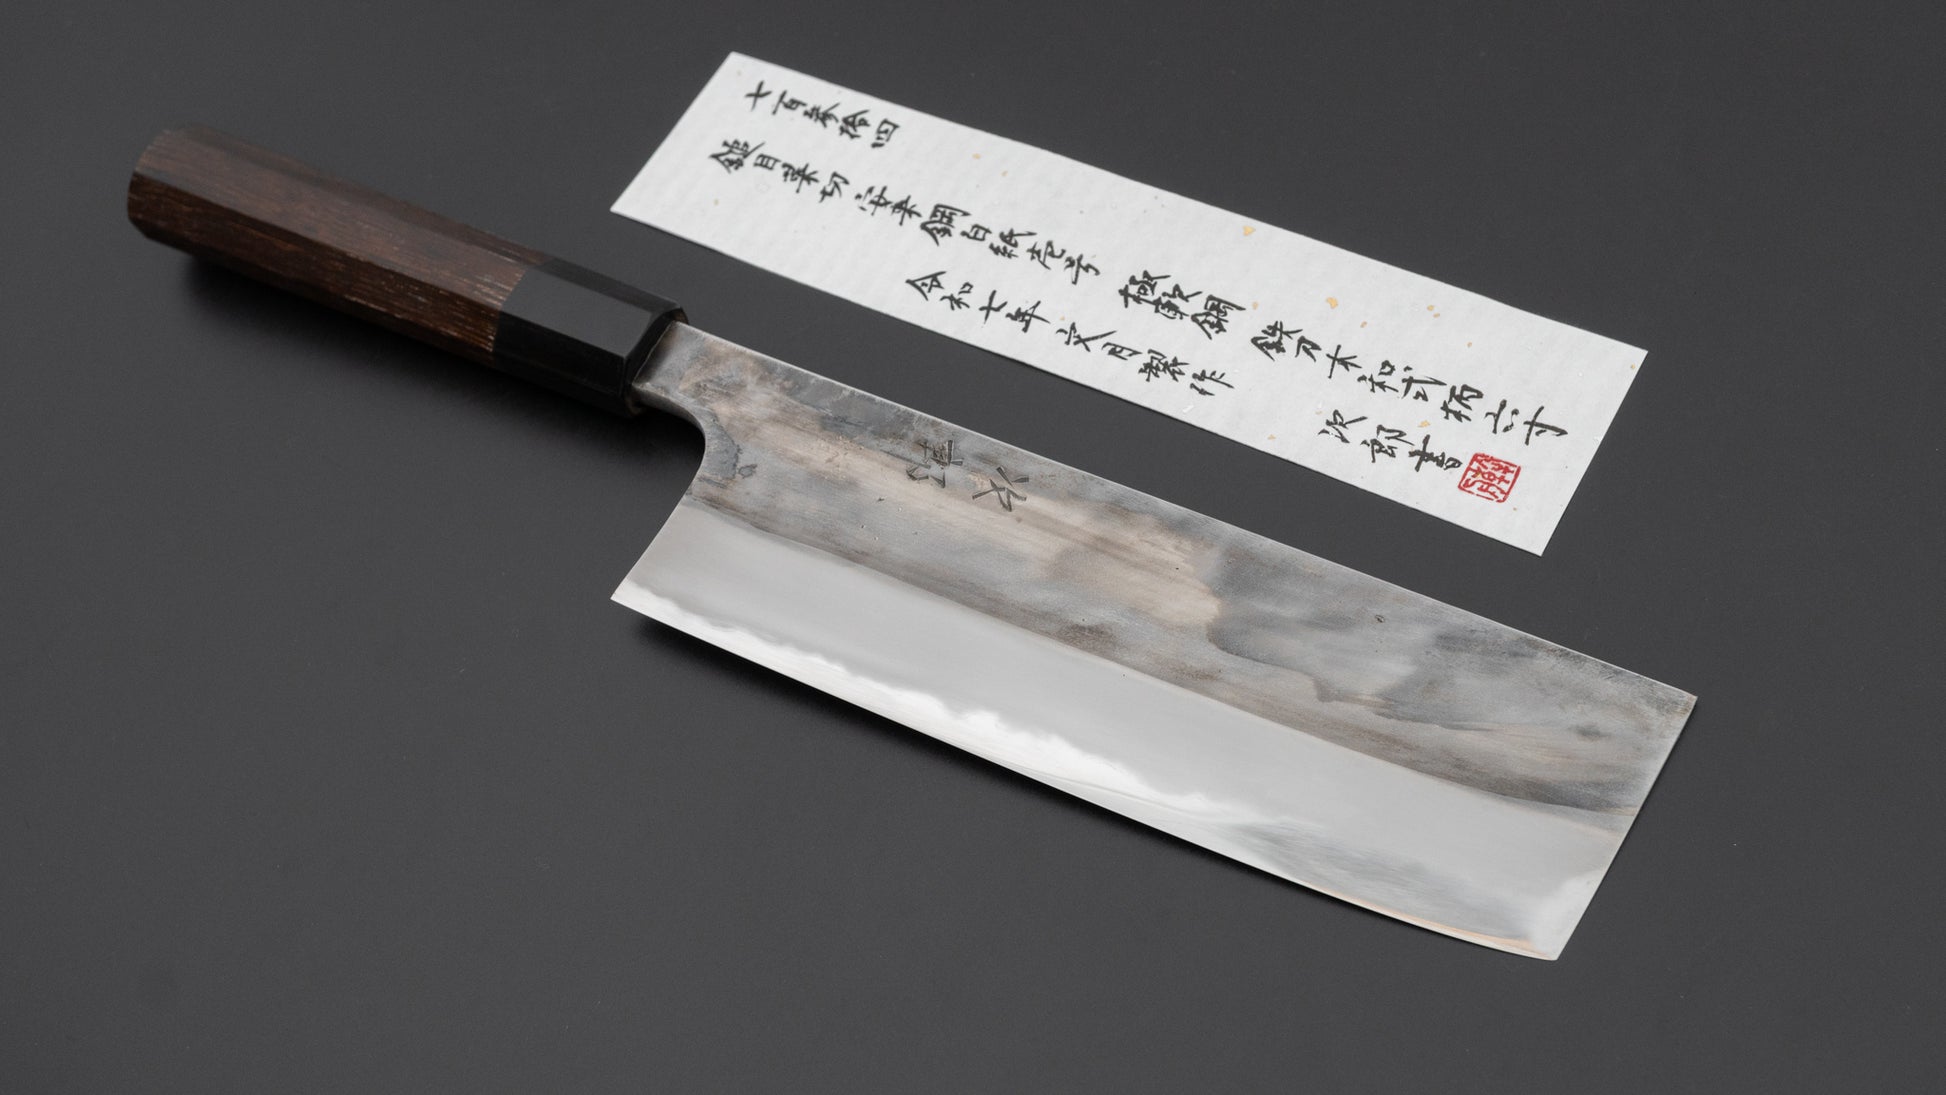 七百参拾四
鎚目菜切 安来鋼白紙壱号 極軟鋼 鉄刀木和式柄六寸
令和七年 文月製作 次郎書